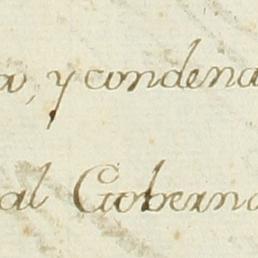 y condena
al Goberna